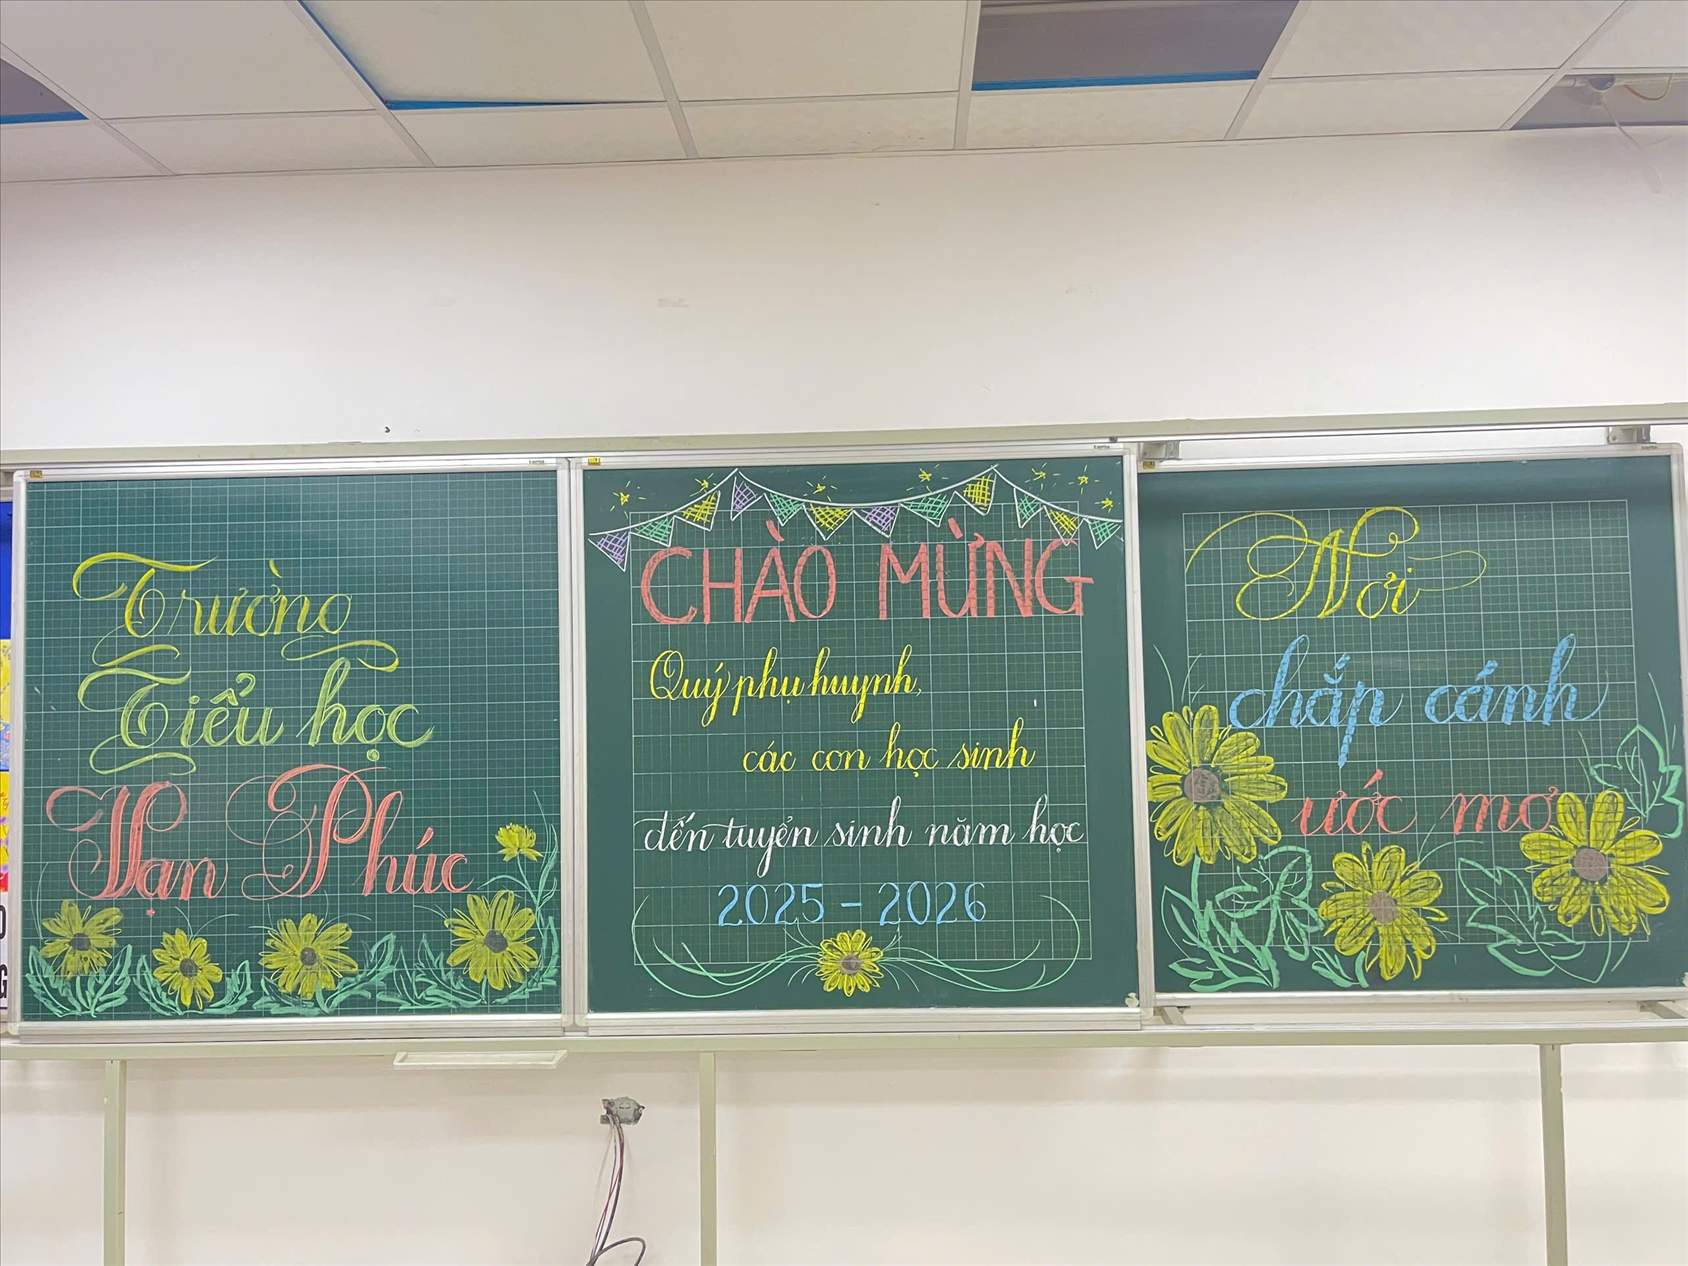 Trường
Tiểu học
Vạn Phúc
CHÀO MỪNG
Quý phụ huynh,
các con học sinh
đến tuyển sinh năm học
2025 - 2026
Nơi
chắp cánh
ước mơ